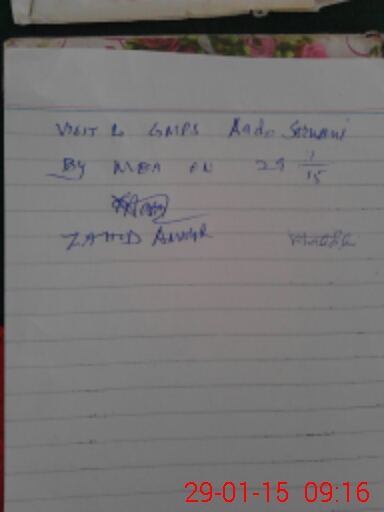 VISIT to GMPS Aado Sarwani
By MEA ON 29 1/15
ZAHID ANWAR
29-01-15 09:16